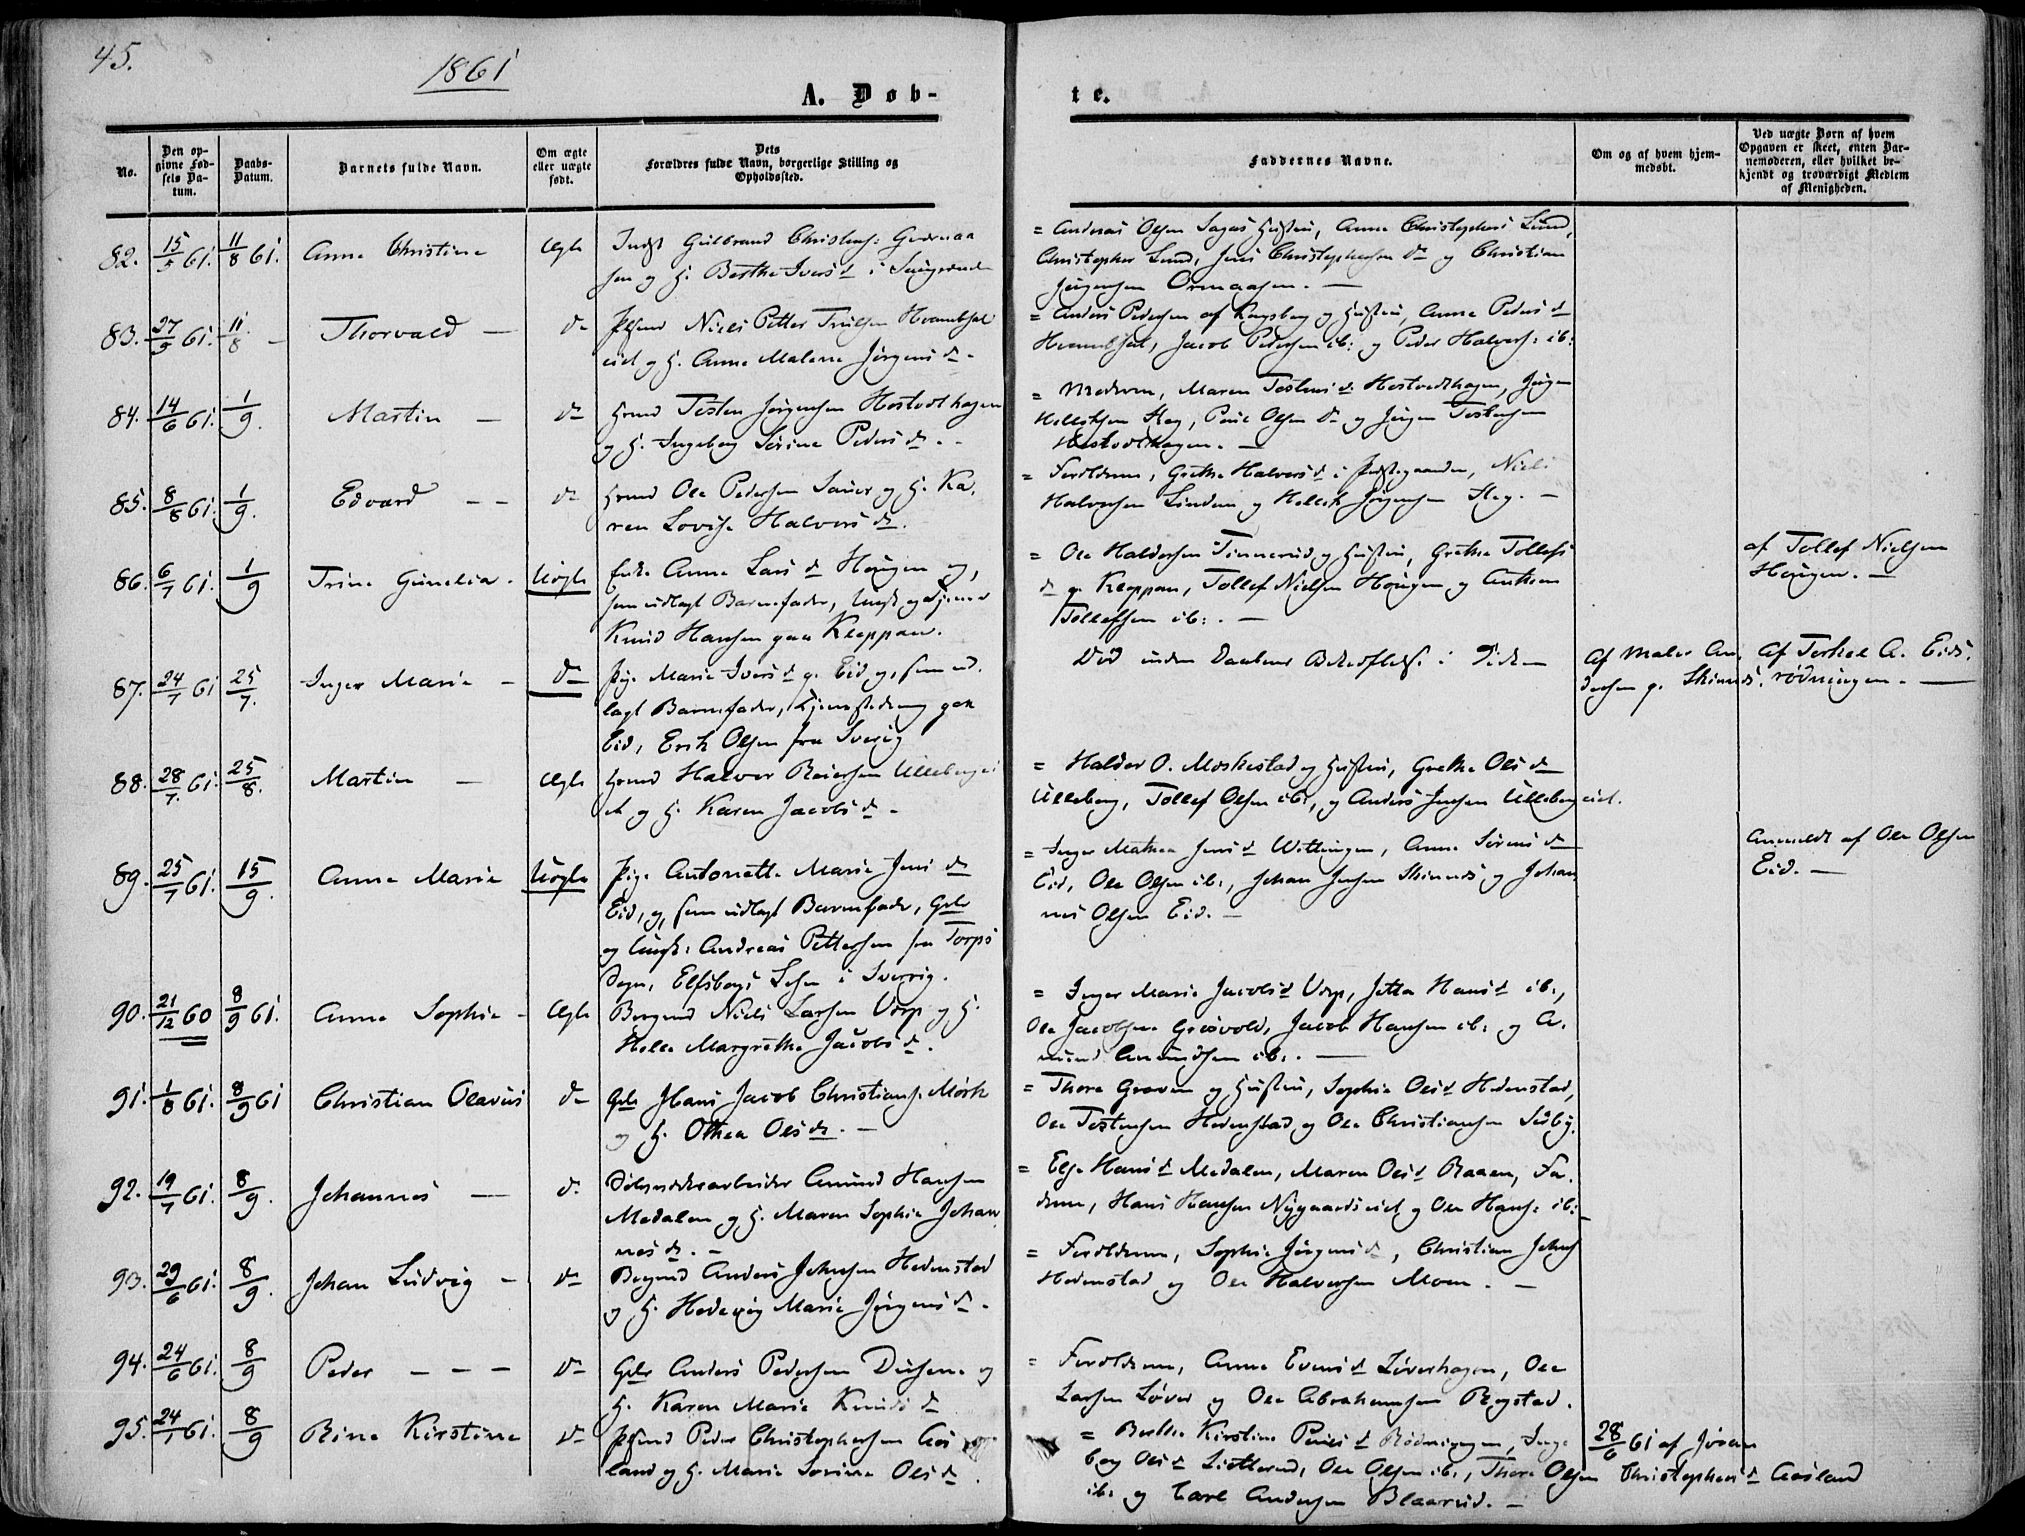 45.
1861
A. Døb-
te.
No.
Den op-
givne Fød-
sels Da-
tum.
Daabs-
Datum.
Barnets fulde Navn.
Om ægte
eller uægte
født.
Dets
Forældres fulde Navn, borgerlige Stilling og
Opholdssted.
Faddernes Navne.
Om og af hvem hjem-
medøbt.
Ved uægte Børn af hvem
Opgaven er skeet, enten Bar-
nemoderen, eller hvilket be-
kjendt og troværdigt Medlem
af Menigheden.
82. 15/5 61. 11/8 61. Anne Christine Ægte Indst Gulbrand
og H. Berthe Ivers d i
= Andreas Olsen Hustru, Anne Christophers Lund,
Christopher Lund, Jens Christophersen do og Christian
Jørgensen Ormaasen. —
83. 27/5 61. 11/8 — Thorvald — do Niels Petter Truls​en
eiet og H. Anne Malene Jørgens dr.
= Anders Pedersen af Kongsberg og Hustru, Anne Peders d
Jacob Pedersen ib: og Peder Halvors: ib:
84. 14/6 61. 1/9. Martin — do Hmd Testen Jørgensen Hostvedthagen
og H. Ingeborg Sørine Peders dr. -
= Moderen, Maren Testens d. Hostvedthagen, Jørgen
Helliksen Steg, Poul Olsen do og Jørgen Testensen
Hostvedthagen. —
85. 8/8 61. 1/9. Edvard — — do Hmd Ole Pedersen Sauer og H. Ka-
ren Lovise Halvors dr.
= Forældrene, Grethe Halvors d i Præstegaarden, Niels
Halvorsen Linden og Hellik Jørgensen Steg. —
86. 6/7 61. 1/9 Trine Gunelia. Uægte Enke Anne Lars d Hougen og,
som udlagt Barnefader,
Knud Hansen paa Kleppan.
= Ole Haldorsen Tinnerud og Hustru, Grethe Tollefs
d p. Kleppan, Tollef Nielsen Hougen og Anthon
Tollefsen ib: . —
af Tollef Nielsen
Hougen. —
87. 24/7 61 25/7. Inger Marie — do Pige Marie Ivers d p. Eid og, som ud-
lagt Barnefader, paa
Eid, Erik Olsen fra Sverig
Død inden Daabens Bekræftelse i Kirken
Af Maler An-
dersen p. Skinnes.
Af Terkel A. Eids-
rødningen. —
88. 28/7. 61. 25/8. Martin — Ægte Hmd Halvor Reiersen Ulleberg ei-
et og H. Karen Jacobs dr -
= Haldor O. Moskestad og Hustru, Grethe Ols dr
Ulleberg, Tollef Olsen ib:, og Anders Jensen Ullebergeiet.
89. 25/7 61. 15/9. Anne Marie Uægte Pige Antonette Marie Jens dr
Eid, og, som udlagt Barnefader, Gbr
og Ungk: Andreas Pettersen fra Torps
Sogn, Elfsborgs Lehn i Sverrig.
= Inger Mathea Jens d Wettingen, Anne Sørens dr
Eid, Ole Olsen ib:, Johan Jensen Skinnes og Johan
nes Olsen Eid. —
Anmeldt af Ole Olsen
Eid. —
90. 21/12 60 8/9 61. Anne Sophie — Ægte Bergmd Niels Larsen Vorp og H.
Helle Margrethe Jacobs dr.
= Inger Marie Jacobs d Vorp, Jette Hans d ib:,
Ole Jacobsen Grøsvold, Jacob Hansen ib: og A-
mund Amundsen ib:. —
91. 1/8 61. 8/9 61 Christian Olavus do Gbr Hans Jacob Christians: Mørk
og H. Othea Ols dr. —
= Thore Graven og Hustru, Sophie Ols d Hedenstad,
Ole Testensen Hedenstad og Ole Christiansen Sidby.
92. 19/7 61. 8/9. Johannes — do. Sølvværksarbeider Amund Hansen
Medalen og H. Maren Sophie Johan
nes dr. -
= Else Hans d Medalen, Maren Ols d Raaen, Fa-
deren, Hans Hansen Nygaardseiet og Ole Hans: ib:
93. 29/6 61. 8/9. Johan Ludvig — do Bergmd Anders Johnsen Hedenstad
og H. Hedevig Marie Jørgens d -
= Forældrene, Sophie Jørgens d, Christian Johns
Hedenstad og Ole Halvorsen Moen. —
94. 24/6 61. 8/9 Peder — — — do Gbr Anders Pedersen og
H. Karen Marie Knuds dr
= Forældrene, Anne Evens d Løverhagen, Ole
Larsen Løver og Ole Abrahamsen Rogstad.
95. 24/1 61. 8/9 Rine Kirstine do Peder Christophersen Aas
land og H. Marie Sørine Ols d.
= Berthe Kirstine Pouls d Rødningen, Inge
borg Ols d Ole Olsen ib:, Thore Olsen
ib: og Carl Andersen Blaarud. —
28/6 61 af Jøran
Christophers d Aasland